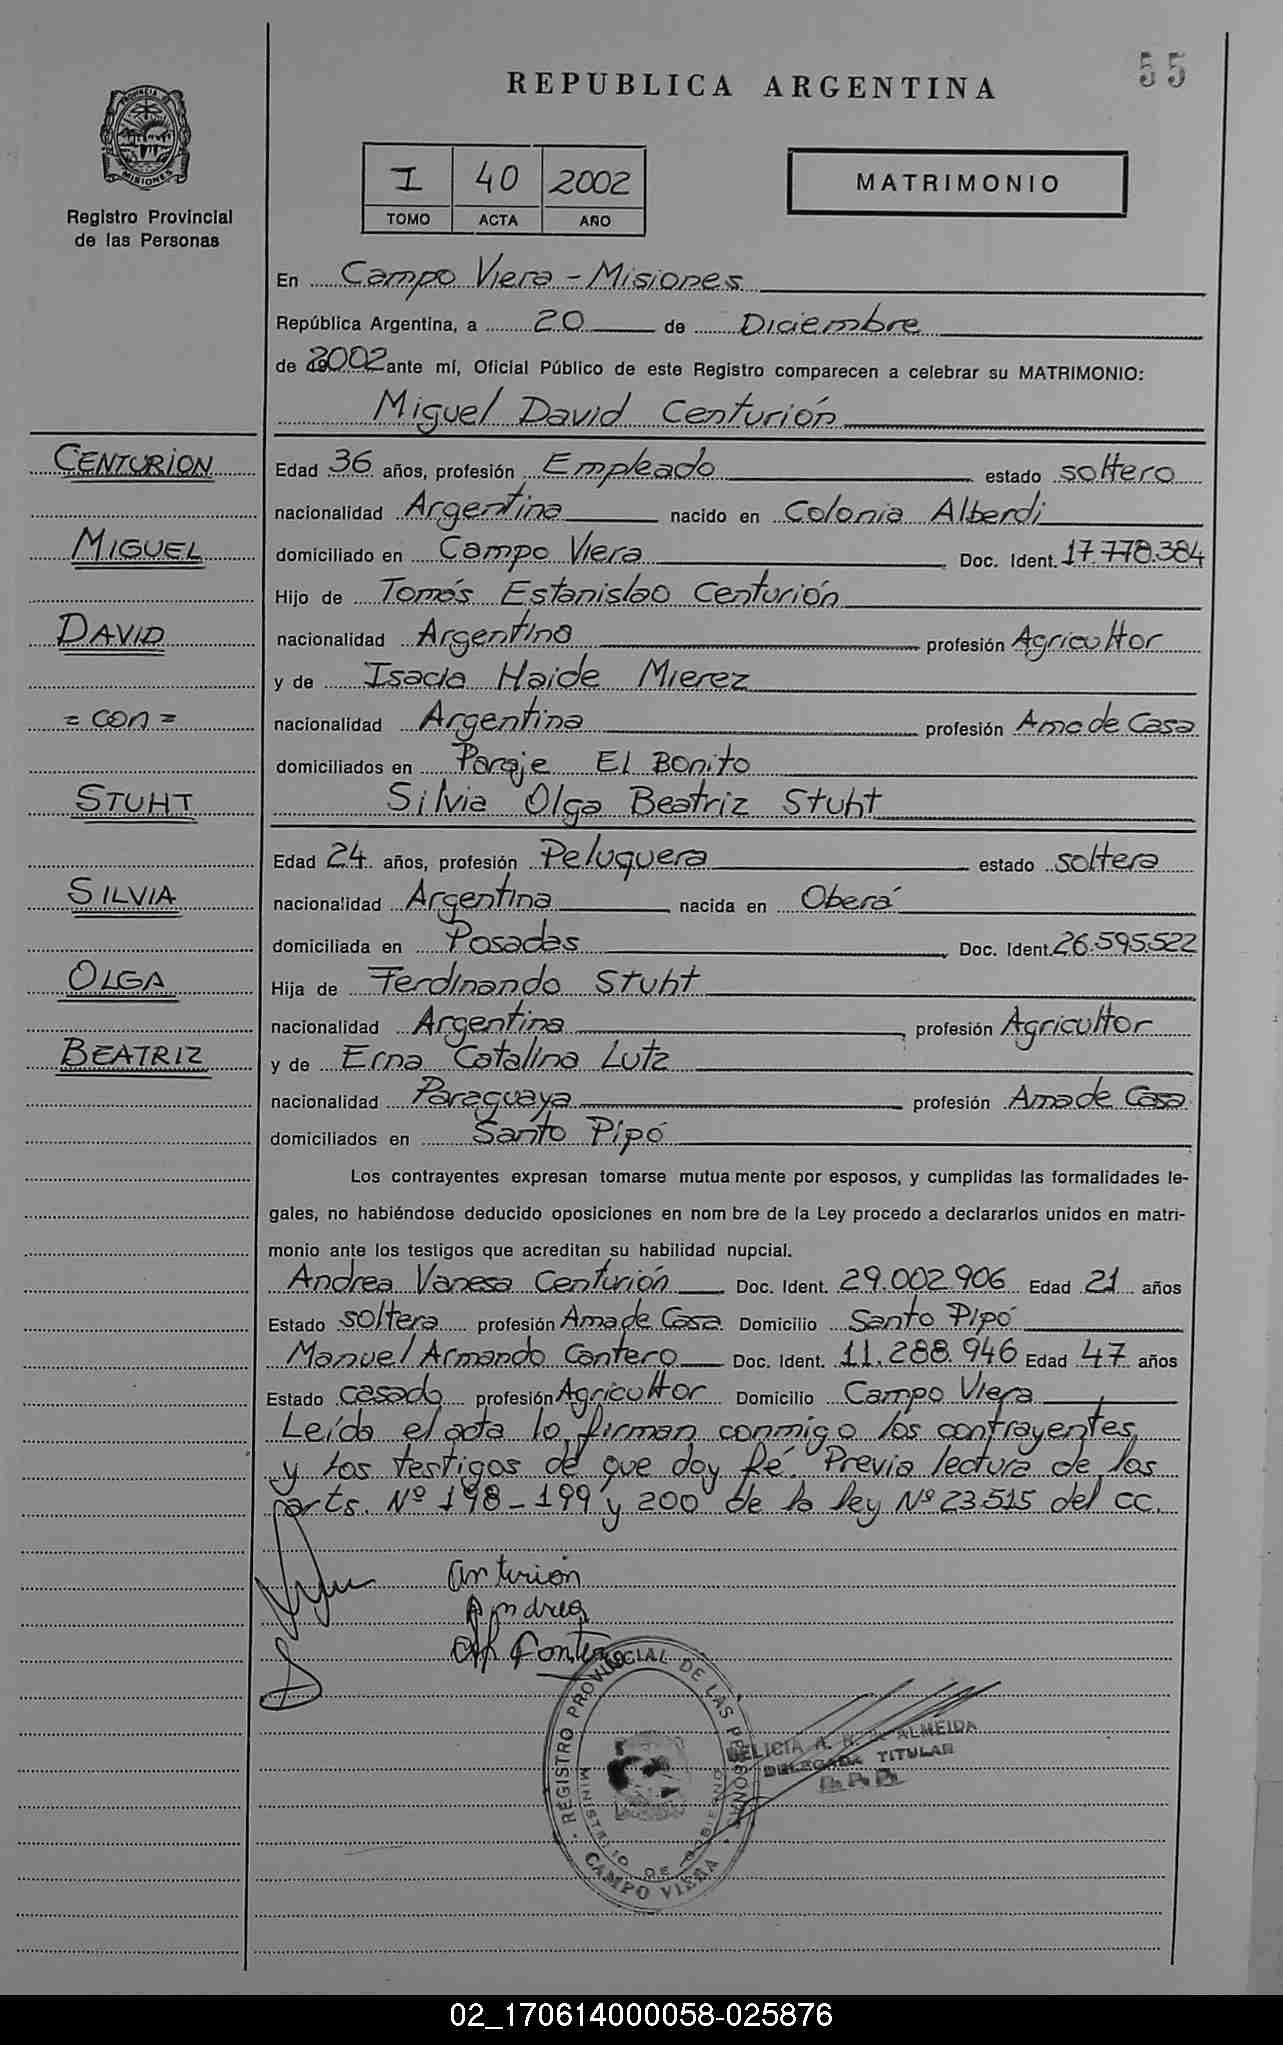 55
REPUBLICA ARGENTINA
PROVINCIA DE MISIONES
Registro Provincial
de las Personas
I 40 2002
TOMO ACTA AÑO
MATRIMONIO
En Campo Viera - Misiones
República Argentina, a 20 de Diciembre
de 2002 ante mí, Oficial Público de este Registro comparecen a celebrar su MATRIMONIO:
Miguel David Centurión
CENTURION
MIGUEL
DAVID
= con =
STUHT
SILVIA
OLGA
BEATRIZ
Edad 36 años, profesión Empleado estado soltero
nacionalidad Argentina nacido en Colonia Alberdi
domiciliado en Campo Viera Doc. Ident. 17.778.384
Hijo de Tomás Estanislao Centurión
nacionalidad Argentina profesión Agricultor
y de Isacia Haide Mierez
nacionalidad Argentina profesión Ama de Casa
domiciliados en Paraje El Bonito
Silvia Olga Beatriz Stuht
Edad 24 años, profesión Peluquera estado soltera
nacionalidad Argentina nacida en Oberá
domiciliada en Posadas Doc. Ident. 26.595.522
Hija de Ferdinando Stuht
nacionalidad Argentina profesión Agricultor
y de Erna Catalina Lutz
nacionalidad Paraguaya profesión Ama de Casa
domiciliados en Santo Pipó
Los contrayentes expresan tomarse mutua mente por esposos, y cumplidas las formalidades le-
gales, no habiéndose deducido oposiciones en nom bre de la Ley procedo a declararlos unidos en matri-
monio ante los testigos que acreditan su habilidad nupcial.
Andrea Vanesa Centurión Doc. Ident. 29.002.906 Edad 21 años
Estado soltera profesión Ama de Casa Domicilio Santo Pipó
Manuel Armando Cantero Doc. Ident. 11.288.946 Edad 47 años
Estado casado profesión Agricultor Domicilio Campo Viera
Leída el acta lo firman conmigo los contrayentes
y los testigos de que doy fé. Previa lectura de los
arts. Nº 198-199 y 200 de la ley Nº 23.515 del CC.
Andrea
REGISTRO PROVINCIAL DE LAS PERSONAS
MINISTERIO DE GOBIERNO
CAMPO VIERA
DELICIA A. ALMEIDA
DELEGADA TITULAR
02_170614000058-025876